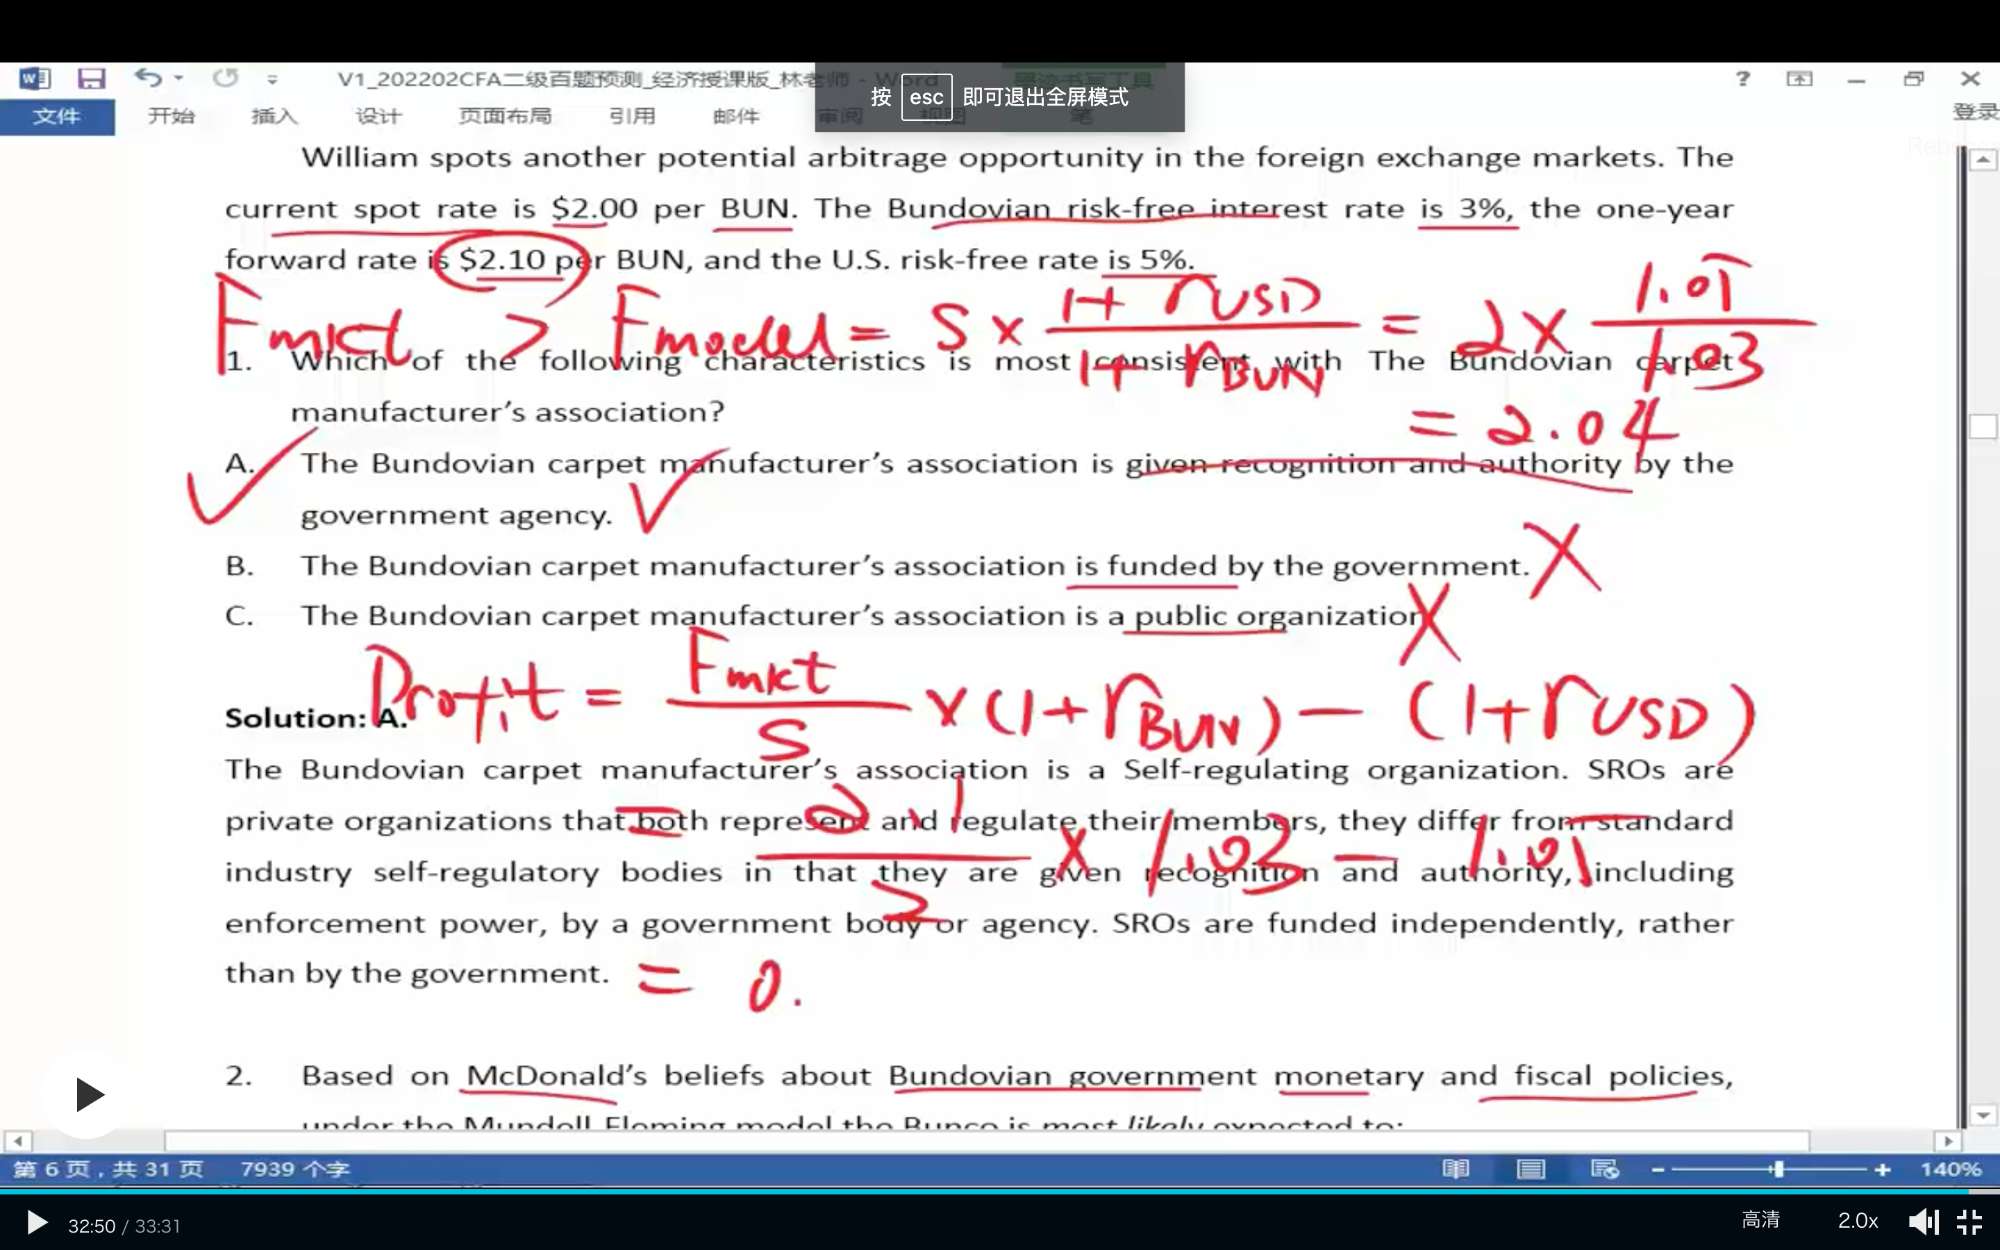 V1_202202CFA二级百题预测_经济授课版_林老师 - Word
按 esc 即可退出全屏模式
文件 开始 插入 设计 页面布局 引用 邮件 审阅 视图 笔 登录
William spots another potential arbitrage opportunity in the foreign exchange markets. The
current spot rate is $2.00 per BUN. The Bundovian risk-free interest rate is 3%, the one-year
forward rate is $2.10 per BUN, and the U.S. risk-free rate is 5%.
Fmkt > Fmodel = S × (1+rUSD)/(1+rBUN) = 2 × 1.05/1.03
= 2.04
1. Which of the following characteristics is most consistent with The Bundovian carpet
manufacturer's association?
A. The Bundovian carpet manufacturer's association is given recognition and authority by the
government agency.
B. The Bundovian carpet manufacturer's association is funded by the government.
C. The Bundovian carpet manufacturer's association is a public organization
Profit = Fmkt/S × (1+rBUN) − (1+rUSD)
Solution: A.
The Bundovian carpet manufacturer's association is a Self-regulating organization. SROs are
= 2.1/2 × 1.03 − 1.05
private organizations that both represent and regulate their members, they differ from standard
industry self-regulatory bodies in that they are given recognition and authority, including
enforcement power, by a government body or agency. SROs are funded independently, rather
than by the government.
= 0.
2. Based on McDonald's beliefs about Bundovian government monetary and fiscal policies,
under the Mundell Fleming model the Bunco is most likely expected to:
第 6 页，共 31 页 7939 个字 140%
32:50 / 33:31 高清 2.0x